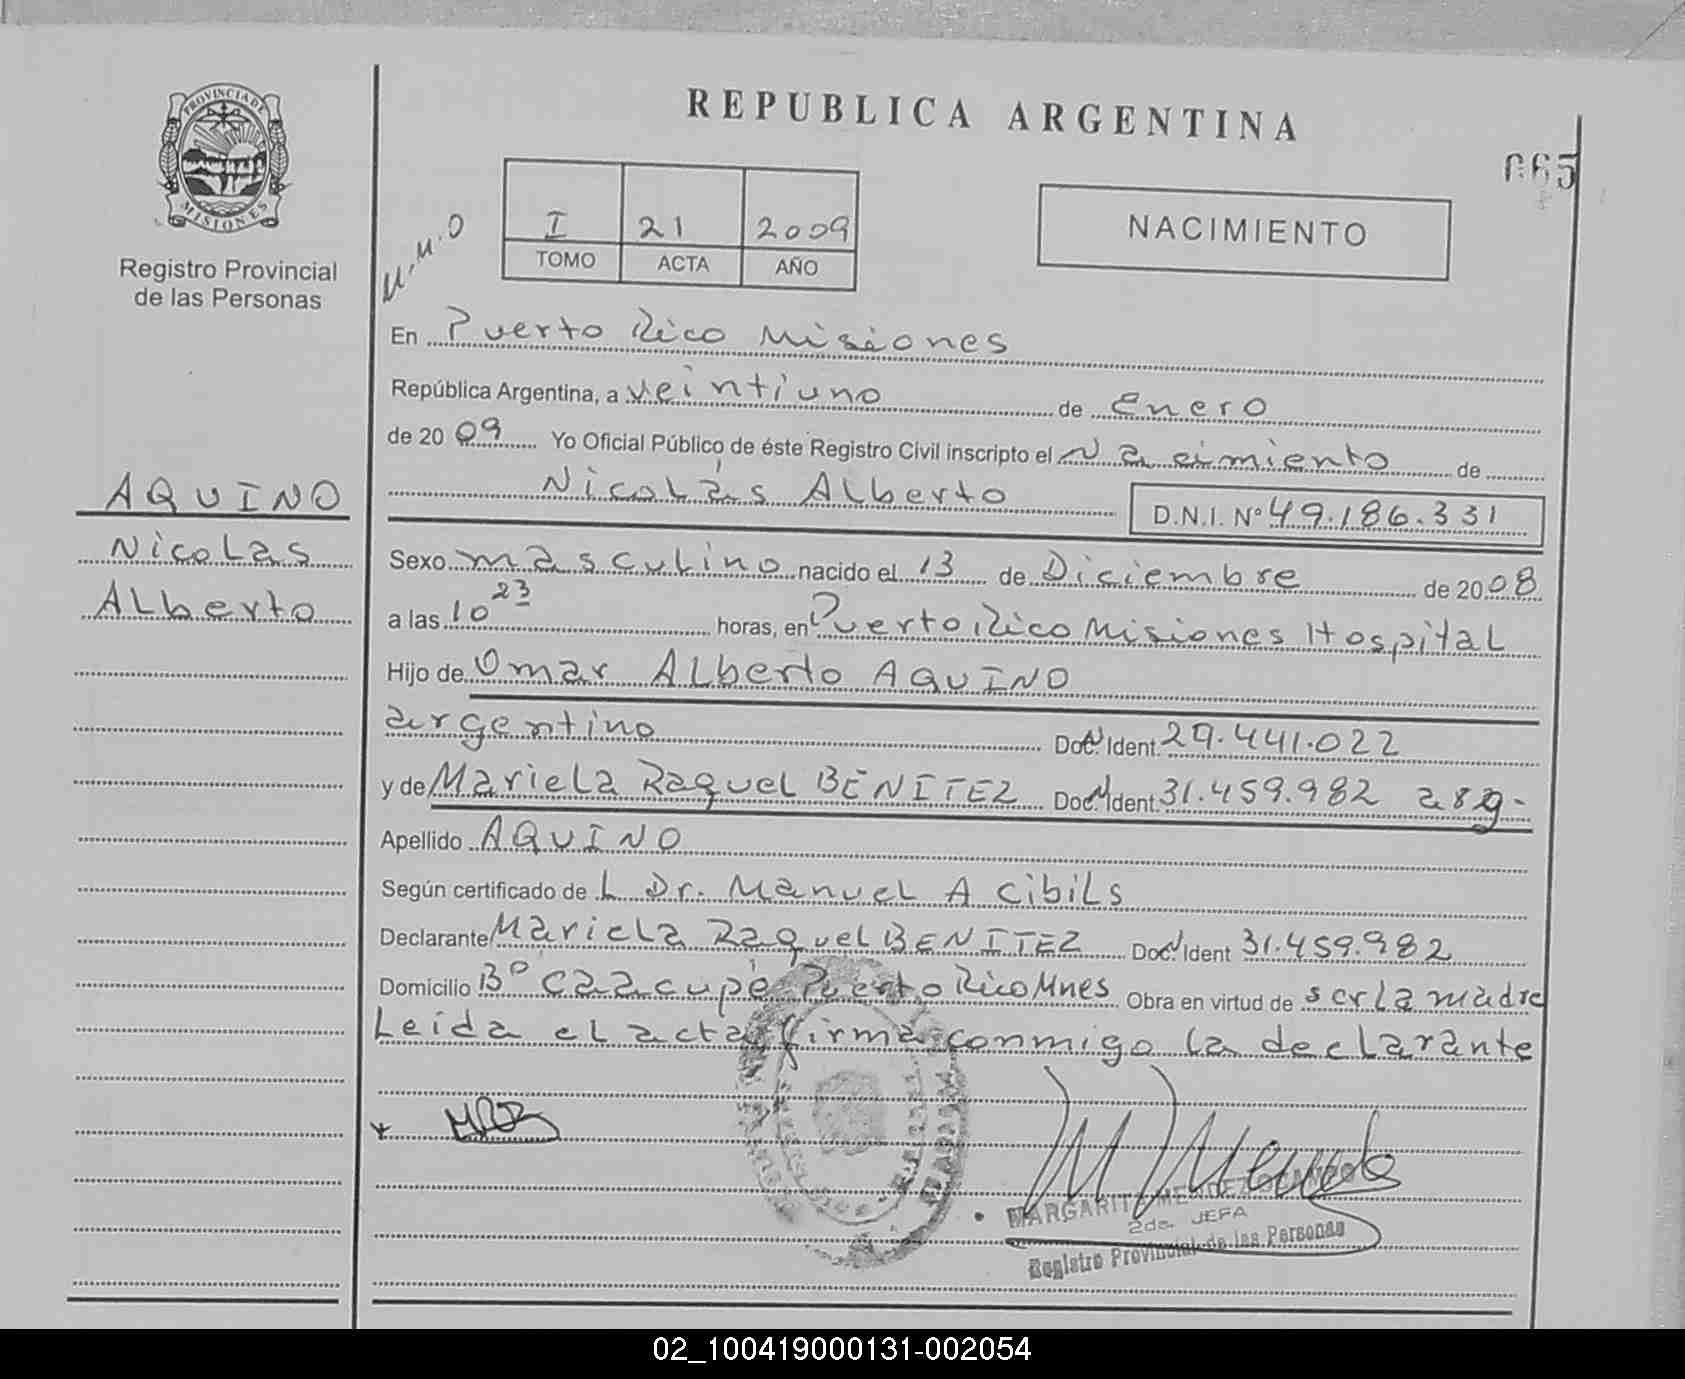 REPUBLICA ARGENTINA
065
PROVINCIA DE
MISIONES
Registro Provincial
de las Personas
M.M.O
I 21 2009
TOMO ACTA AÑO
NACIMIENTO
En Puerto Rico Misiones
República Argentina, a veintiuno de Enero
de 2009 Yo Oficial Público de éste Registro Civil inscripto el Nacimiento de
Nicolás Alberto D.N.I. Nº 49.186.331
AQUINO
Nicolas
Alberto
Sexo masculino nacido el 13 de Diciembre de 2008
a las 10 23 horas, en Puerto Rico Misiones Hospital
Hijo de Omar Alberto AQUINO
argentino Doc. Ident. 29.441.022
y de Mariela Raquel BENITEZ Doc. Ident. 31.459.982 arg-
Apellido AQUINO
Según certificado de L Dr. Manuel A Cibils
Declarante Mariela Raquel BENITEZ Doc. Ident 31.459.982
Domicilio Bº Caacupé Puerto Rico Mnes Obra en virtud de ser la madre
Leida el acta firma conmigo la declarante
MRB
MARGARITA MENDEZ
2da. JEFA
Registro Provincial de las Personas
02_100419000131-002054